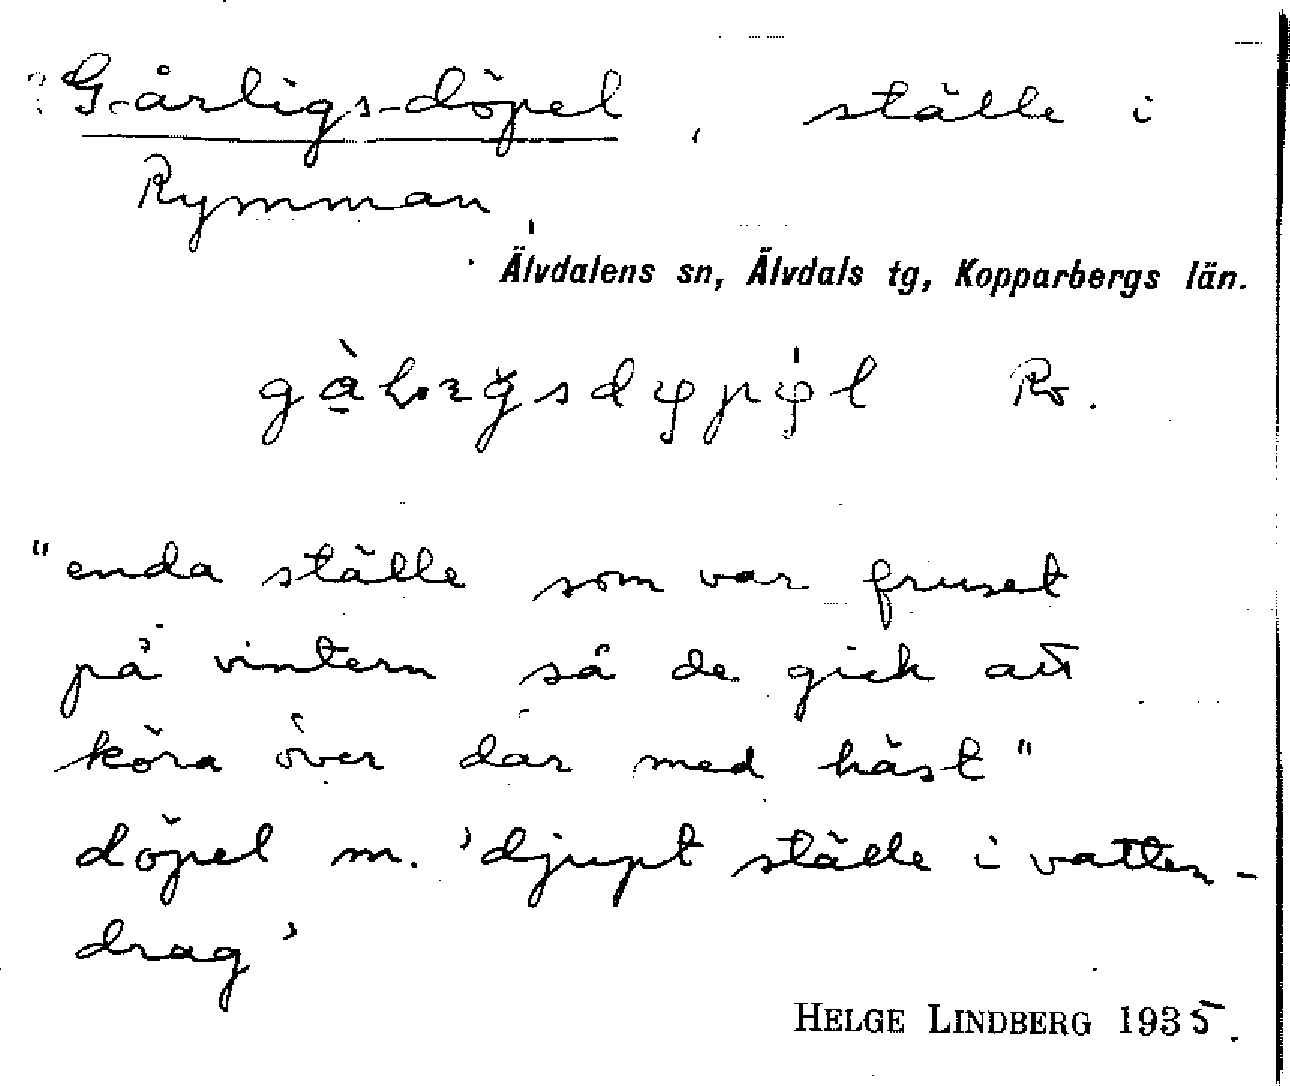 G-årligs-döpel, ställe i
Rymman
Älvdalens sn, Älvdals tg, Kopparbergs län.
"enda ställe som var fruset
på vintern så de gick att
köra över där med häst"
döpel m. 'djupt ställe i vatten-
drag'
HELGE LINDBERG 1935.